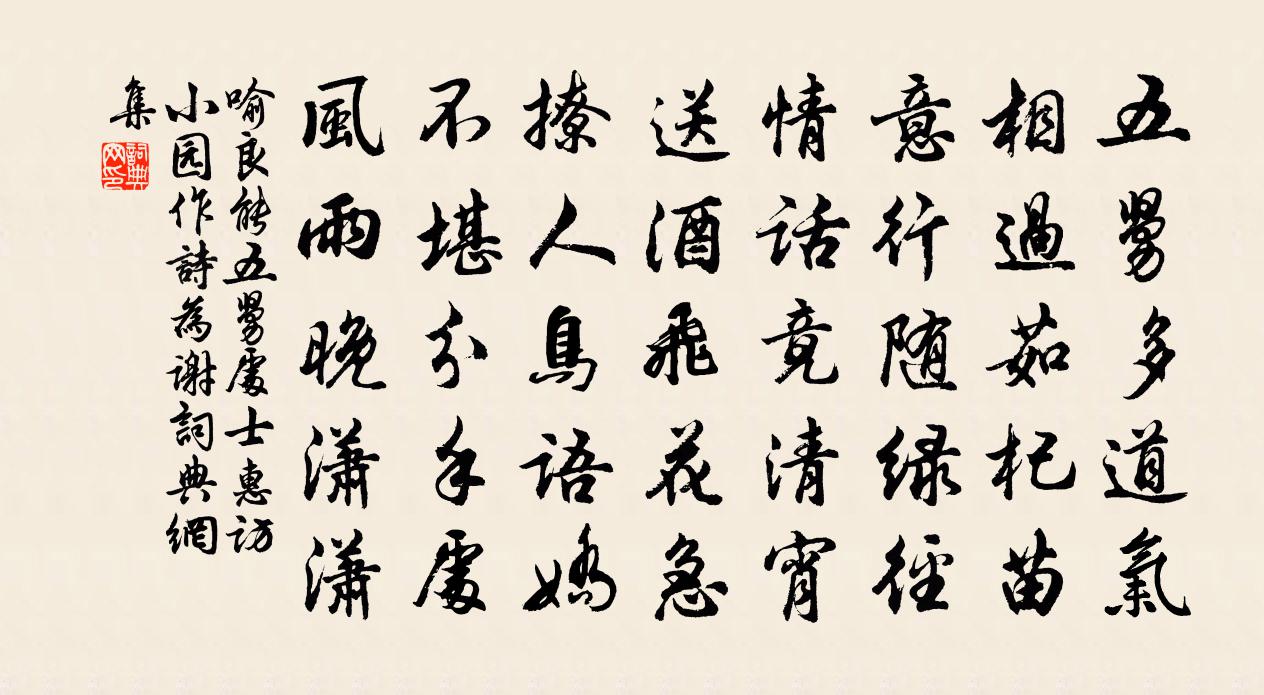 五舅多道氣
相過茹杞苗
意行随绿徑
情话竟清宵
送酒飛花急
撩人鳥語嬌
不堪分手處
風雨晚瀟瀟
喻良能五舅處士惠访
小园作詩為谢詞典網
集
詞典
网印